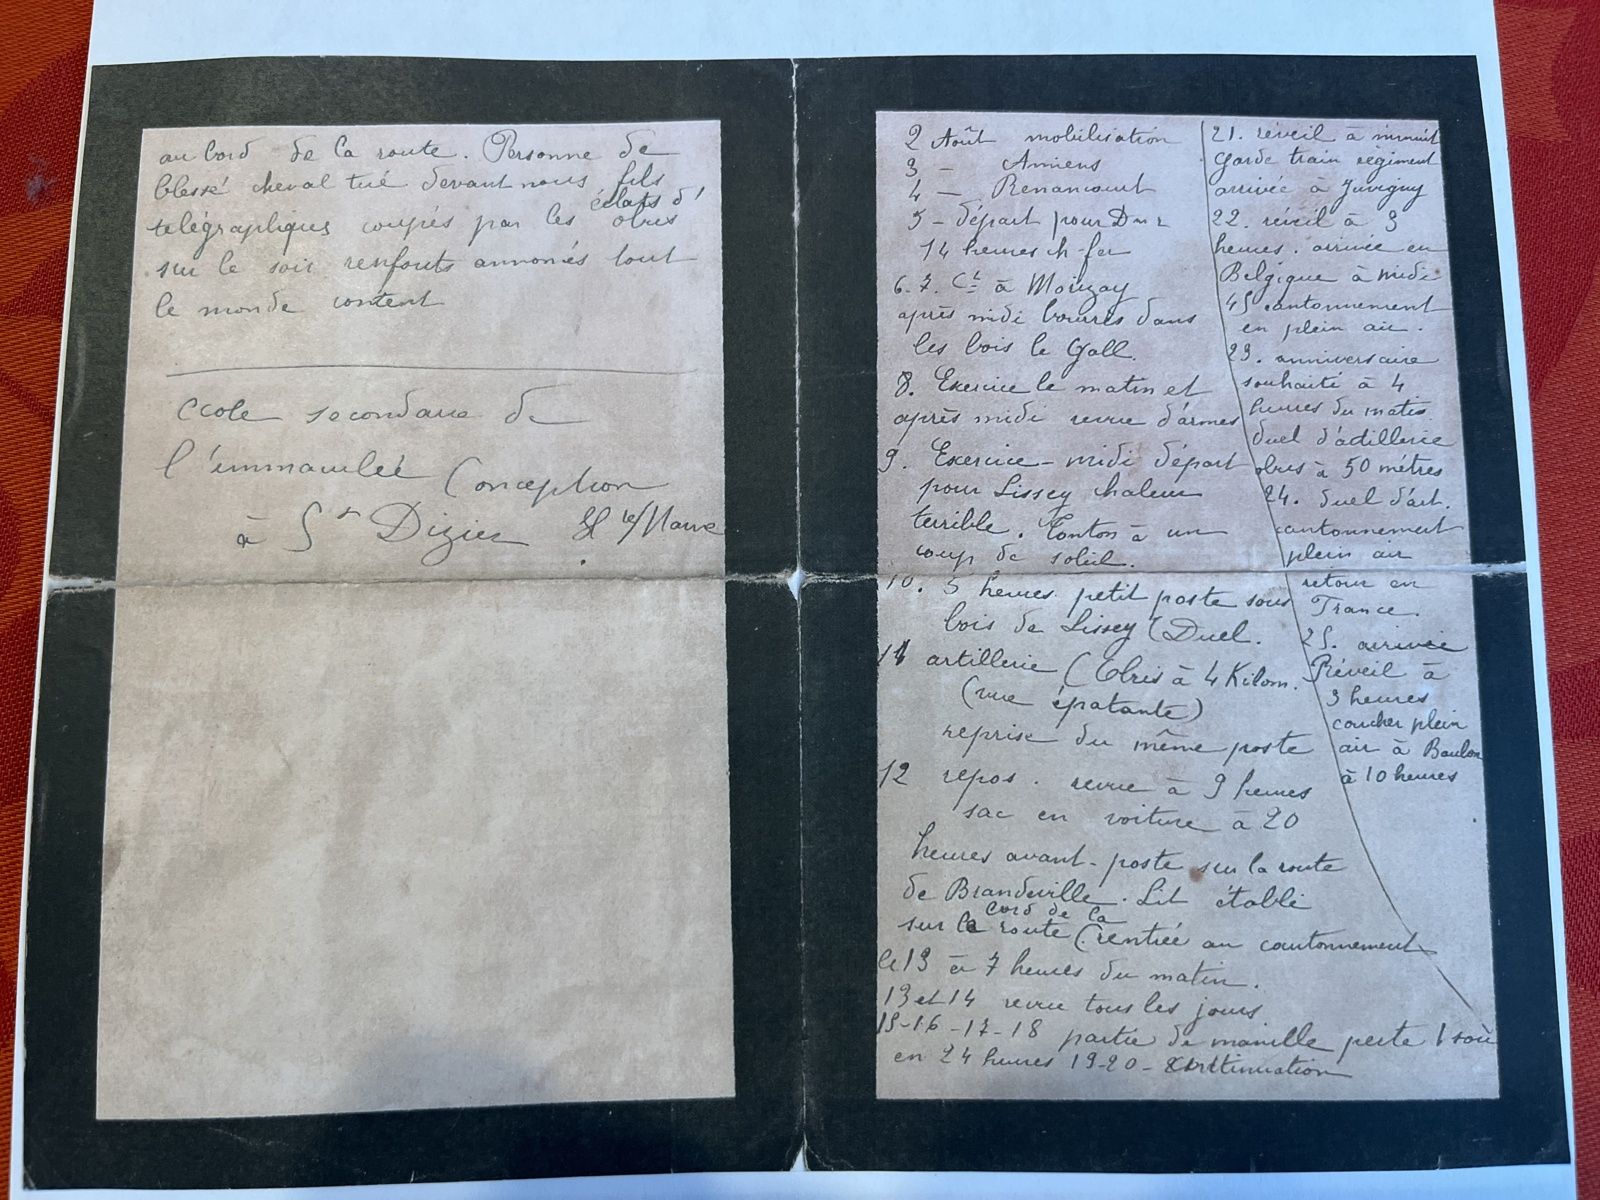 au bord de la route. Personne de
blessé cheval tué devant nous fils
télégraphiques coupés par les éclats d'
obus
sur le soir renforts annoncés tout
le monde content
école secondaire de
l'immaculée Conception
à St Dizier Hte/Marne
2 Août mobilisation
3 - Amiens
4 - Renancourt
5 - départ pour Dun
14 heures ch-fer
6-7. Ct à Mouzay
après midi bourres dans
les bois le Gall.
8. Exercice le matin et
après midi revue d'armes
9. Exercice - midi départ
pour Lissey chaleur
terrible. Tonton à un
coup de soleil.
10. 5 heures petit poste sous
bois de Lissey (Duel.
11 artillerie (Obus à 4 Kilom.
(vue épatante)
reprise du même poste
12 repos. revue à 9 heures
sac en voiture à 20
heures avant-poste sur la route
de Brandeville. Lit établi
bord de la
sur la route (rentrée au cantonnement
le 13 à 7 heures du matin.
13 et 14 revue tous les jours
15-16-17-18 partie de manille perte 1 sou
en 24 heures 19-20 - continuation
21. réveil à minuit
garde train régiment
arrivée à Juvigny
22. réveil à 3
heures. arrivée en
Belgique à midi
45 cantonnement
en plein air.
23. anniversaire
souhaité à 4
heures du matin
duel d'artillerie
obus à 50 mètres
24. duel d'art.
cantonnement
plein air
retour en
France.
25. arrivée
Réveil à
3 heures
coucher plein
air à Baulon
à 10 heures